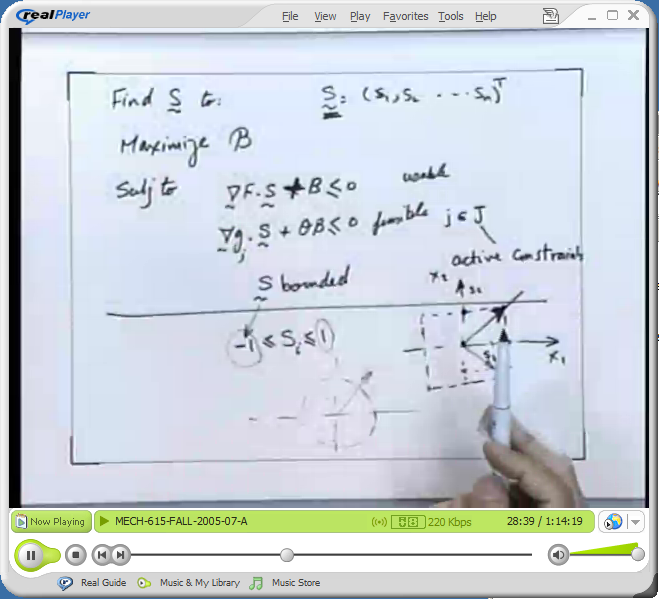 realPlayer
File View Play Favorites Tools Help
Find S to: S = (s₁, s₂ ... sₙ)ᵀ
Maximize B
Subj to ∇F·S + B ≤ 0 usable
∇gⱼ·S + θB ≤ 0 feasible j ∈ J
active constraints
S bounded
x₂
s₂
-1 ≤ Sᵢ ≤ 1
s₁
x₁
Now Playing MECH-615-FALL-2005-07-A 220 Kbps 28:39 / 1:14:19
Real Guide Music & My Library Music Store